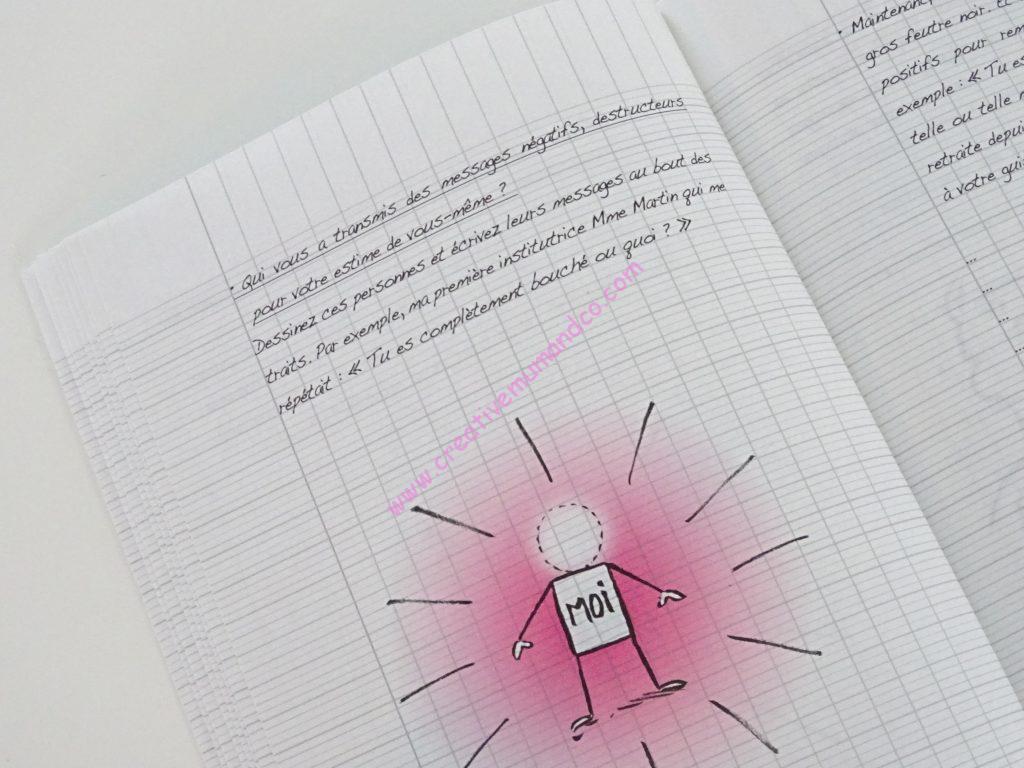 • Qui vous a transmis des messages négatifs, destructeurs
pour votre estime de vous-même ?
Dessinez ces personnes et écrivez leurs messages au bout des
traits. Par exemple, ma première institutrice Mme Martin qui me
répétait : « Tu es complètement bouché ou quoi ? »
www.creativemumandco.com
MOI
• Maintenant,
gros feutre noir.
positifs pour
exemple : « Tu es
telle ou telle
retraite depuis
à votre guise
...
...
...
...